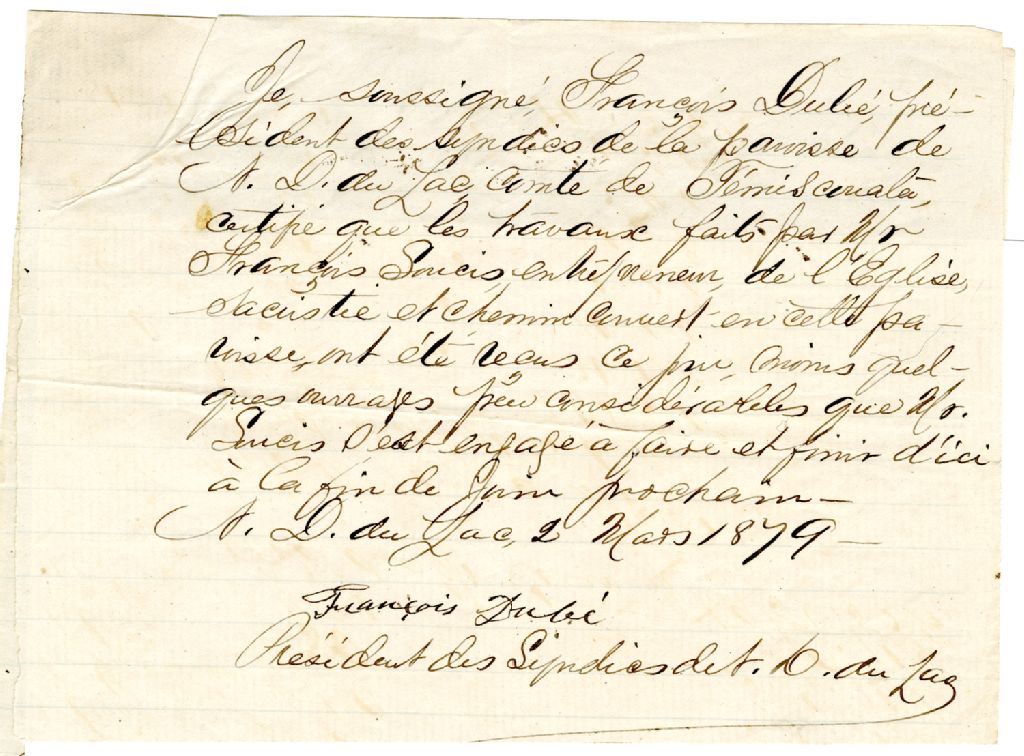 Je, soussigné, François Dubé, pré-
sident des syndics de la paroisse de
N. D. du Lac, comté de Témiscouata,
certifie que les travaux faits par Mr
François Soucis, entrepreneur, de l'Eglise,
sacristie et chemin couvert en cette pa-
roisse, ont été recus ce jour, moins quel-
ques ouvrages peu considérables que Mr.
Soucis s'est engagé à faire et finir d'ici
à la fin de Juin prochain—
N. D. du Lac, 2 Mars 1879—
François Dubé
Président des Syndics de N. D. du Lac